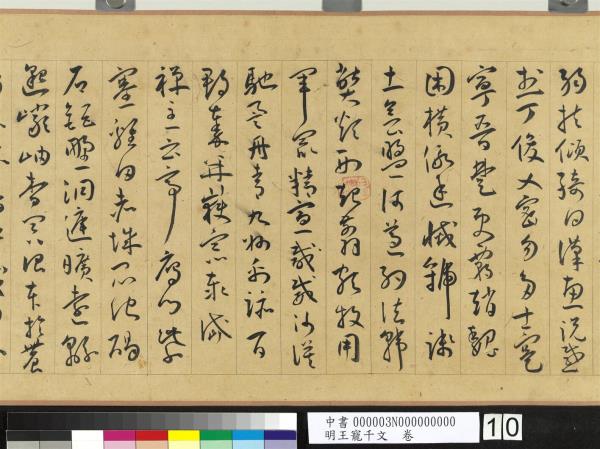 弱扶傾綺回漢惠說感
武丁俊乂密勿多士寔
寧晉楚更霸趙魏
困橫假途滅虢踐
土會盟何遵約法韓
弊煩刑起翦頗牧用
軍最精宣威沙漠
馳譽丹青九州禹跡百
郡秦并嶽宗泰岱
禪主云亭雁門紫
塞雞田赤城昆池碣
石鉅野洞庭曠遠綿
邈巖岫杳冥治本於農
中書 000003N000000000
明王寵千文 卷
10